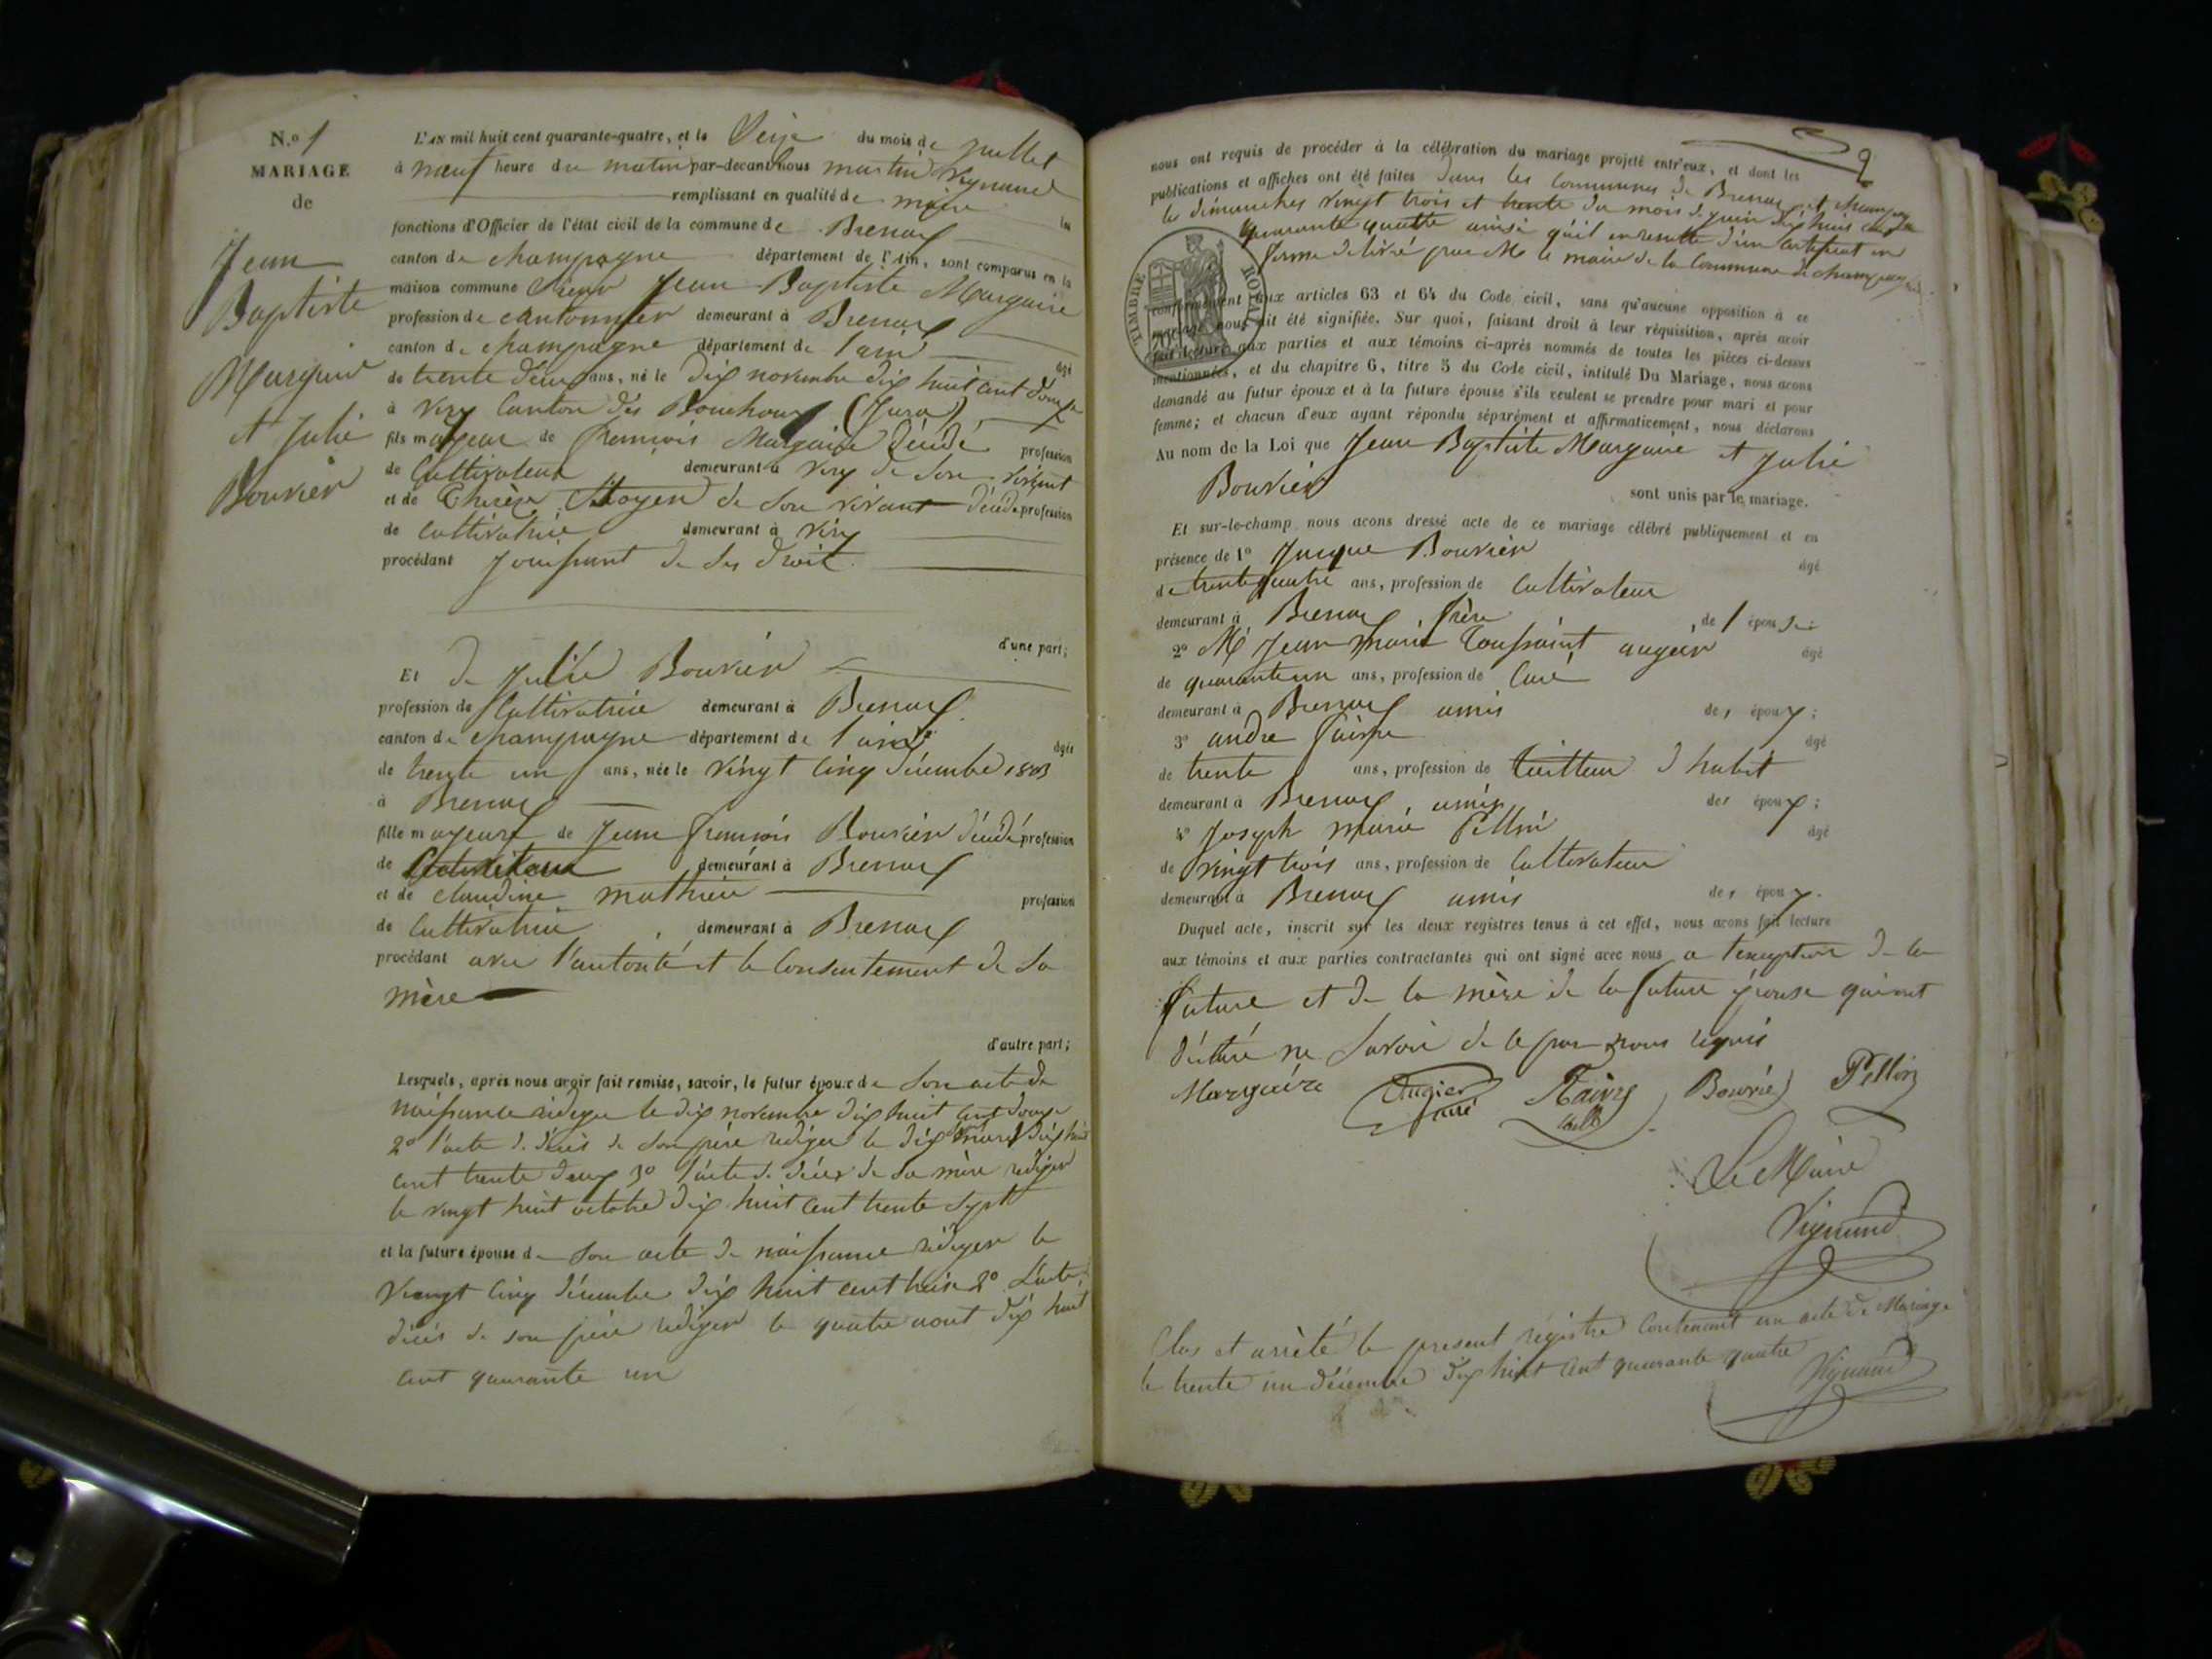 N.o 1
MARIAGE
de
Jean
Baptiste
Marguire
et Julie
Bouvier
L'AN mil huit cent quarante-quatre, et le Seize du mois de juillet
à neuf heure du matin par-devant nous martin Vignand
remplissant en qualité de maire les
fonctions d'Officier de l'état civil de la commune de Brenas
canton de champagne département de l'Ain, sont comparus en la
maison commune Sieur Jean Baptiste Marguire
profession de cantonnier demeurant à Brenas
canton de champagne département de l'ain âgé
de trente deux ans, né le dix novembre dix huit cent douze
à viry Canton des Bouchoux (Jura)
fils majeur de francois Marguire décédé profession
de Cultivateur demeurant à viry de son vivant
et de Thérèse de son vivant décédé profession
de cultivatrice demeurant à viry
procédant jouissant de ses droit
d'une part;
Et de Julie Bouvier
profession de Cultivatrice demeurant à Brenas
canton de champagne département de l'ain âgée
de trente un ans, née le vingt cinq décembre 1803
à Brenas
fille majeure de jean francois Bouvier décédé profession
de Cultivateur demeurant à Brenas
et de claudine mathieu profession
de Cultivatrice demeurant à Brenas
procédant avec l'autorité et le consentement de sa
mère
d'autre part;
Lesquels, après nous avoir fait remise, savoir, le futur époux de son acte de
naissance rédiger le dix novembre dix huit cent douze
2o l'acte de décès de son père rédiger le dix mars dix huit
cent trente deux 3o l'acte de décès de sa mère rédiger
le vingt huit octobre dix huit cent trente sept
et la future épouse de son acte de naissance rédiger le
vingt cinq décembre dix huit cent treize 2o L'acte
décès de son père rédiger le quatre aout dix huit
cent quarante un
2
nous ont requis de procéder à la célébration du mariage projeté entr'eux, et dont les
publications et affiches ont été faites dans les communes de Brenas et champagne
les dimanches vingt trois et trente du mois de juin dix huit cent
quarante quatre ainsi qu'il en resulte d'un Certificat en
forme délivré par Mr le maire de la Commune de champagne
TIMBRE ROYAL
conformément aux articles 63 et 64 du Code civil, sans qu'aucune opposition à ce
mariage nous ait été signifiée. Sur quoi, faisant droit à leur réquisition, après avoir
fait lecture aux parties et aux témoins ci-après nommés de toutes les pièces ci-dessus
mentionnées, et du chapitre 6, titre 5 du Code civil, intitulé Du Mariage, nous avons
demandé au futur époux et à la future épouse s'ils veulent se prendre pour mari et pour
femme; et chacun d'eux ayant répondu séparément et affirmativement, nous déclarons
Au nom de la Loi que Jean Baptiste Marguire et Julie
Bouvier sont unis par le mariage.
Et sur-le-champ nous avons dressé acte de ce mariage célébré publiquement et en
présence de 1o Jacque Bouvier âgé
de trente quatre ans, profession de Cultivateur
demeurant à Brenas frère de l épouse
2o Mr Jean marie Toussaint augier âgé
de quarante un ans, profession de Curé
demeurant à Brenas amis des époux;
3o andré faivre âgé
de trente ans, profession de tailleur d'habit
demeurant à Brenas amis des époux;
4o Joseph marie Pellin âgé
de vingt trois ans, profession de Cultivateur
demeurant à Brenas amis des époux.
Duquel acte, inscrit sur les deux registres tenus à cet effet, nous avons fait lecture
aux témoins et aux parties contractantes qui ont signé avec nous a l'exception de la
future et de la mère de la future épouse qui ont
déclaré ne savoir de ce par nous requis
Marguire Augier curé Faivre Bouvier Pellin
Le Maire
Vignand
Clos et arrêté le present régistre Contenant un acte de Mariage
le trente un décembre dix huit cent quarante quatre
Vignand